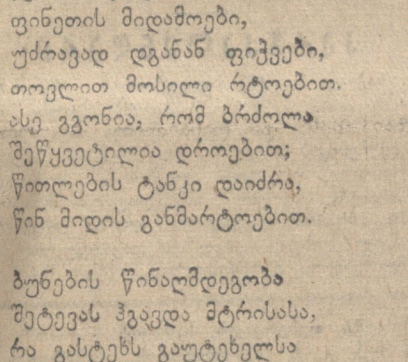 ფინეთის მიდამოები,
უძრავად დგანან ფიჭვები,
თოვლით მოსილი რტოებით.
ასე გგონია, რომ ბრძოლა
შეწყვეტილია დროებით;
წითლების ტანკი დაიძრა,
წინ მიდის განმარტოებით.
ბუნების წინაღმდეგობა
შეტევას ჰგავდა მტრისასა,
რა გასტეხს გაუტეხელსა